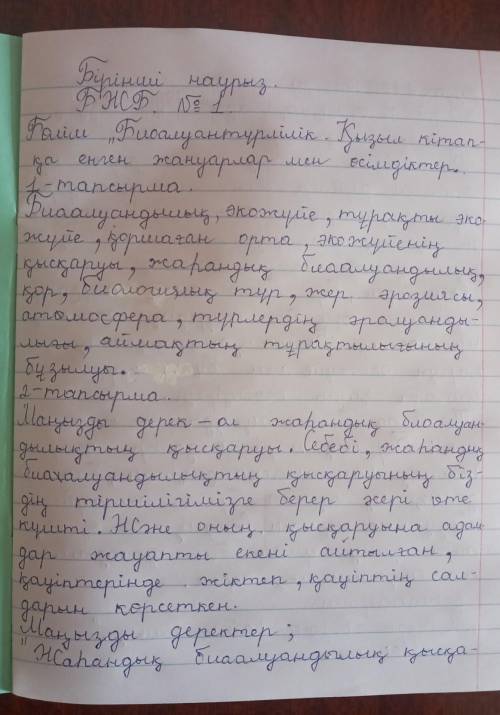 Бірінші наурыз.
БЖБ. №1.
Бөлім „Биоалуантүрлілік. Қызыл кітап-
қа енген жануарлар мен өсімдіктер..
1-тапсырма.
Биоалуандылық, экожүйе, тұрақты эко-
жүйе, қоршаған орта, экожүйенің
қысқаруы, жаһандық биоалуандылық,
қор, биологиялық түр, жер эрозиясы,
атомосфера, түрлердің әралуанды-
лығы, аймақтың тұрақтылығының
бұзылуы.
2-тапсырма.
Маңызды дерек - ол жаһандық биоалуан-
дылықтың қысқаруы. Себебі, жаһандық
биоалуандылықтың қысқаруының біз-
дің тіршілігімізге берер жері өте
күшті. Және оның қысқаруына адам-
дар жауапты екені айтылған,
қауіптерінде жіктеп, қауіптің сал-
дарын көрсеткен.
Маңызды деректер;
"Жаһандық биоалуандылық қысқа-